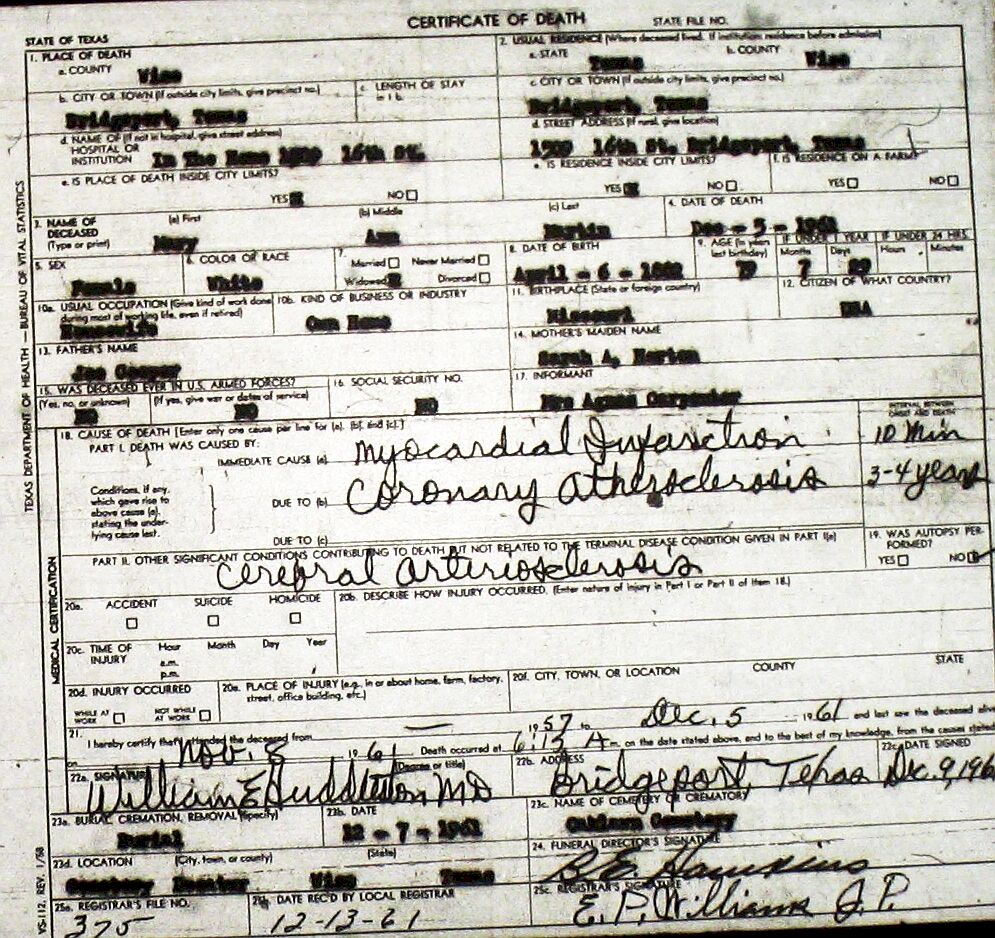 CERTIFICATE OF DEATH STATE FILE NO.
STATE OF TEXAS
1. PLACE OF DEATH
a. COUNTY
Wise
2. USUAL RESIDENCE (Where deceased lived. If institution: residence before admission)
a. STATE b. COUNTY
Texas Wise
b. CITY OR TOWN (If outside city limits, give precinct no.) c. LENGTH OF STAY in 1 b.
Bridgeport, Texas
c. CITY OR TOWN (If outside city limits, give precinct no.)
Bridgeport, Texas
d. NAME OF (If not in hospital, give street address)
HOSPITAL OR
INSTITUTION In The Home 1909 16th St.
d. STREET ADDRESS (If rural, give location)
1909 16th St. Bridgeport, Texas
e. IS PLACE OF DEATH INSIDE CITY LIMITS?
YES NO
e. IS RESIDENCE INSIDE CITY LIMITS? f. IS RESIDENCE ON A FARM?
YES NO YES NO
3. NAME OF DECEASED (Type or print)
(a) First (b) Middle (c) Last
Mary Ann
4. DATE OF DEATH
Dec - 5 - 1961
5. SEX
Female
6. COLOR OR RACE
White
7. Married Never Married
Widowed Divorced
8. DATE OF BIRTH
April - 6 - 1882
9. AGE (In years last birthday)
79
IF UNDER 1 YEAR IF UNDER 24 HRS.
Months Days Hours Minutes
7 29
10a. USUAL OCCUPATION (Give kind of work done during most of working life, even if retired)
Housewife
10b. KIND OF BUSINESS OR INDUSTRY
Own Home
11. BIRTHPLACE (State or foreign country)
Missouri
12. CITIZEN OF WHAT COUNTRY?
USA
13. FATHER'S NAME
Joe Cooper
14. MOTHER'S MAIDEN NAME
Sarah A, Horton
15. WAS DECEASED EVER IN U.S. ARMED FORCES?
(Yes, no, or unknown) (If yes, give war or dates of service)
NO NO
16. SOCIAL SECURITY NO.
NO
17. INFORMANT
Mrs Agnes Carpenter
18. CAUSE OF DEATH [Enter only one cause per line for (a), (b), and (c).]
INTERVAL BETWEEN ONSET AND DEATH
PART I. DEATH WAS CAUSED BY:
IMMEDIATE CAUSE (a) Myocardial Infarction 10 Min
Conditions, if any, which gave rise to above cause (a), stating the underlying cause last.
DUE TO (b) Coronary Atherosclerosis 3-4 years
DUE TO (c)
PART II. OTHER SIGNIFICANT CONDITIONS CONTRIBUTING TO DEATH BUT NOT RELATED TO THE TERMINAL DISEASE CONDITION GIVEN IN PART I(a)
Cerebral Arteriosclerosis
19. WAS AUTOPSY PERFORMED?
YES NO
20a. ACCIDENT SUICIDE HOMICIDE
20b. DESCRIBE HOW INJURY OCCURRED. (Enter nature of injury in Part I or Part II of item 18.)
20c. TIME OF INJURY Hour Month Day Year
a.m.
p.m.
20d. INJURY OCCURRED
WHILE AT WORK NOT WHILE AT WORK
20e. PLACE OF INJURY (e.g., in or about home, farm, factory, street, office building, etc.)
20f. CITY, TOWN, OR LOCATION COUNTY STATE
21. I hereby certify that I attended the deceased from — 1957 to Dec. 5 1961 and last saw the deceased alive
on Nov. 8 1961 Death occurred at 6:15 A m. on the date stated above, and to the best of my knowledge, from the causes stated
22a. SIGNATURE (Degree or title)
William E Huddleston, MD
22b. ADDRESS
Bridgeport, Texas
22c. DATE SIGNED
Dec. 9, 196
23a. BURIAL, CREMATION, REMOVAL (Specify)
Burial
23b. DATE
12 - 7 - 1961
23c. NAME OF CEMETERY OR CREMATORY
Cemetery
23d. LOCATION (City, town, or county) (State)
Cemetery Decatur Wise Texas
24. FUNERAL DIRECTOR'S SIGNATURE
B.E. Hawkins
25a. REGISTRAR'S FILE NO.
375
25b. DATE REC'D BY LOCAL REGISTRAR
12-13-61
25c. REGISTRAR'S SIGNATURE
E. P. Williams J. P.
TEXAS DEPARTMENT OF HEALTH — BUREAU OF VITAL STATISTICS
MEDICAL CERTIFICATION
VS-112, REV. 1/58